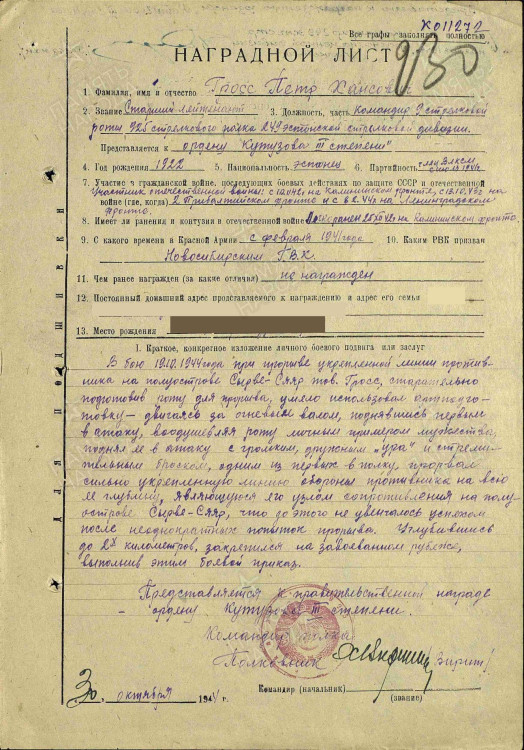 Ж011272
Все графы заполнять полностью
930
НАГРАДНОЙ ЛИСТ
1. Фамилия, имя и отчество Гросс Пётр Хансович
2. Звание Старший лейтенант 3. Должность, часть командир 9 стрелковой
роты 925 стрелкового полка 249 эстонской стрелковой дивизии.
Представляется к ордену "Кутузова III степени"
4. Год рождения 1922 5. Национальность эстонец 6. Партийность член ВЛКСМ
7. Участие в гражданской войне, последующих боевых действиях по защите СССР и отечественной
войне (где, когда) 2 Прибалтийском фронте и с 6.2.44г на Ленинградском
фронте.
8. Имеет ли ранения и контузии в отечественной войне ранен 25.12.42г на Калининском фронте
9. С какого времени в Красной Армии с февраля 1941 года 10. Каким РВК призван
Новосибирским Г.В.К.
11. Чем ранее награжден (за какие отличия) не награжден
12. Постоянный домашний адрес представляемого к награждению и адрес его семьи
13. Место рождения
I. Краткое, конкретное изложение личного боевого подвига или заслуг
В бою 19.10.1944 года при прорыве укрепленной линии против-
ника на полуострове Сырве-Сяяр тов. Гросс, старательно
подготовив роту для прорыва, умело использовал артподго-
товку — двигаясь за огневым валом, поднявшись первым
в атаку, воодушевляя роту личным примером мужества,
поднял её в атаку с громким, дружным "ура" и стреми-
тельным броском, одним из первых в полку, прорвал
сильно укрепленную линию обороны противника на всю
её глубину, являющуюся его узлом сопротивления на полу
острове Сырве-Сяяр, что до этого не увенчалось успехом
после неоднократных попыток прорыва. Углубившись
до 2х километров, закрепился на завоеванном рубеже,
выполнив этим боевой приказ.
Представляется к правительственной награде
— ордену Кутузова III степени.
Командир полка
Полковник
Командир (начальник)
(звание)
30 октября 1944 г.
ДЛЯ ПОДШИВКИ